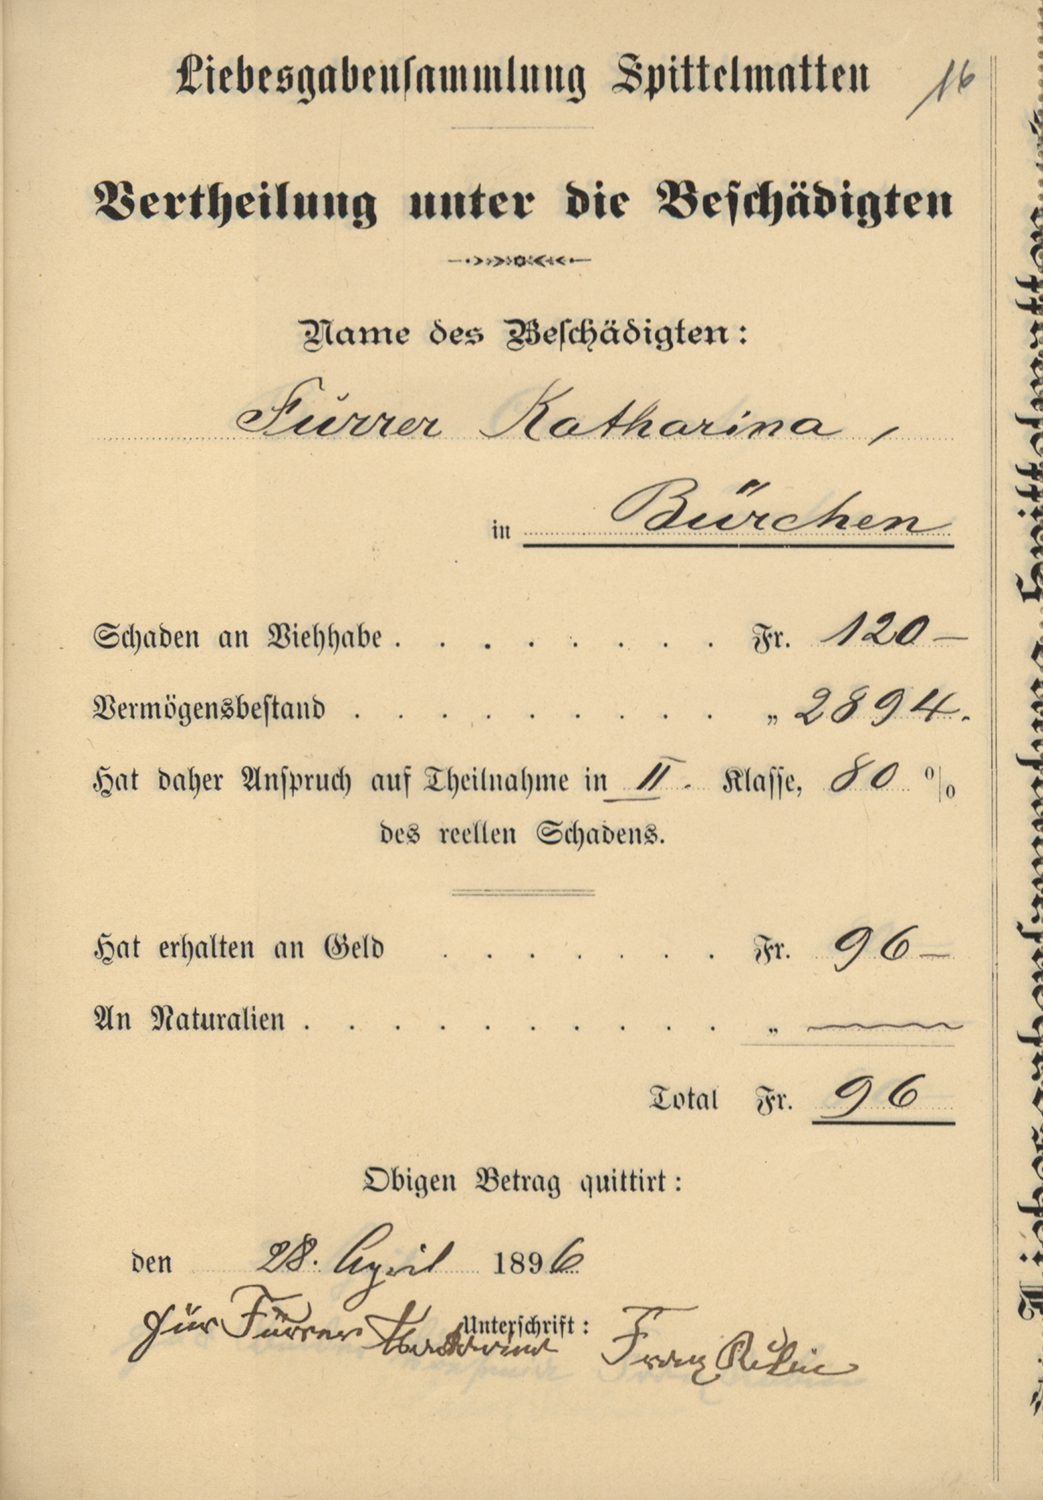 Liebesgabensammlung Spittelmatten 16
Vertheilung unter die Beschädigten
Name des Beschädigten:
Furrer Katharina,
in Bürchen
Schaden an Viehhabe . . . . . . . . Fr. 120 —
Vermögensbestand . . . . . . . . . „ 2894.
Hat daher Anspruch auf Theilnahme in II. Klasse, 80 %
des reellen Schadens.
Hat erhalten an Geld . . . . . . . Fr. 96 —
An Naturalien . . . . . . . . . . „ —
Total Fr. 96
Obigen Betrag quittirt:
den 28. April 1896
Unterschrift:
für Furrer Katharina Franz